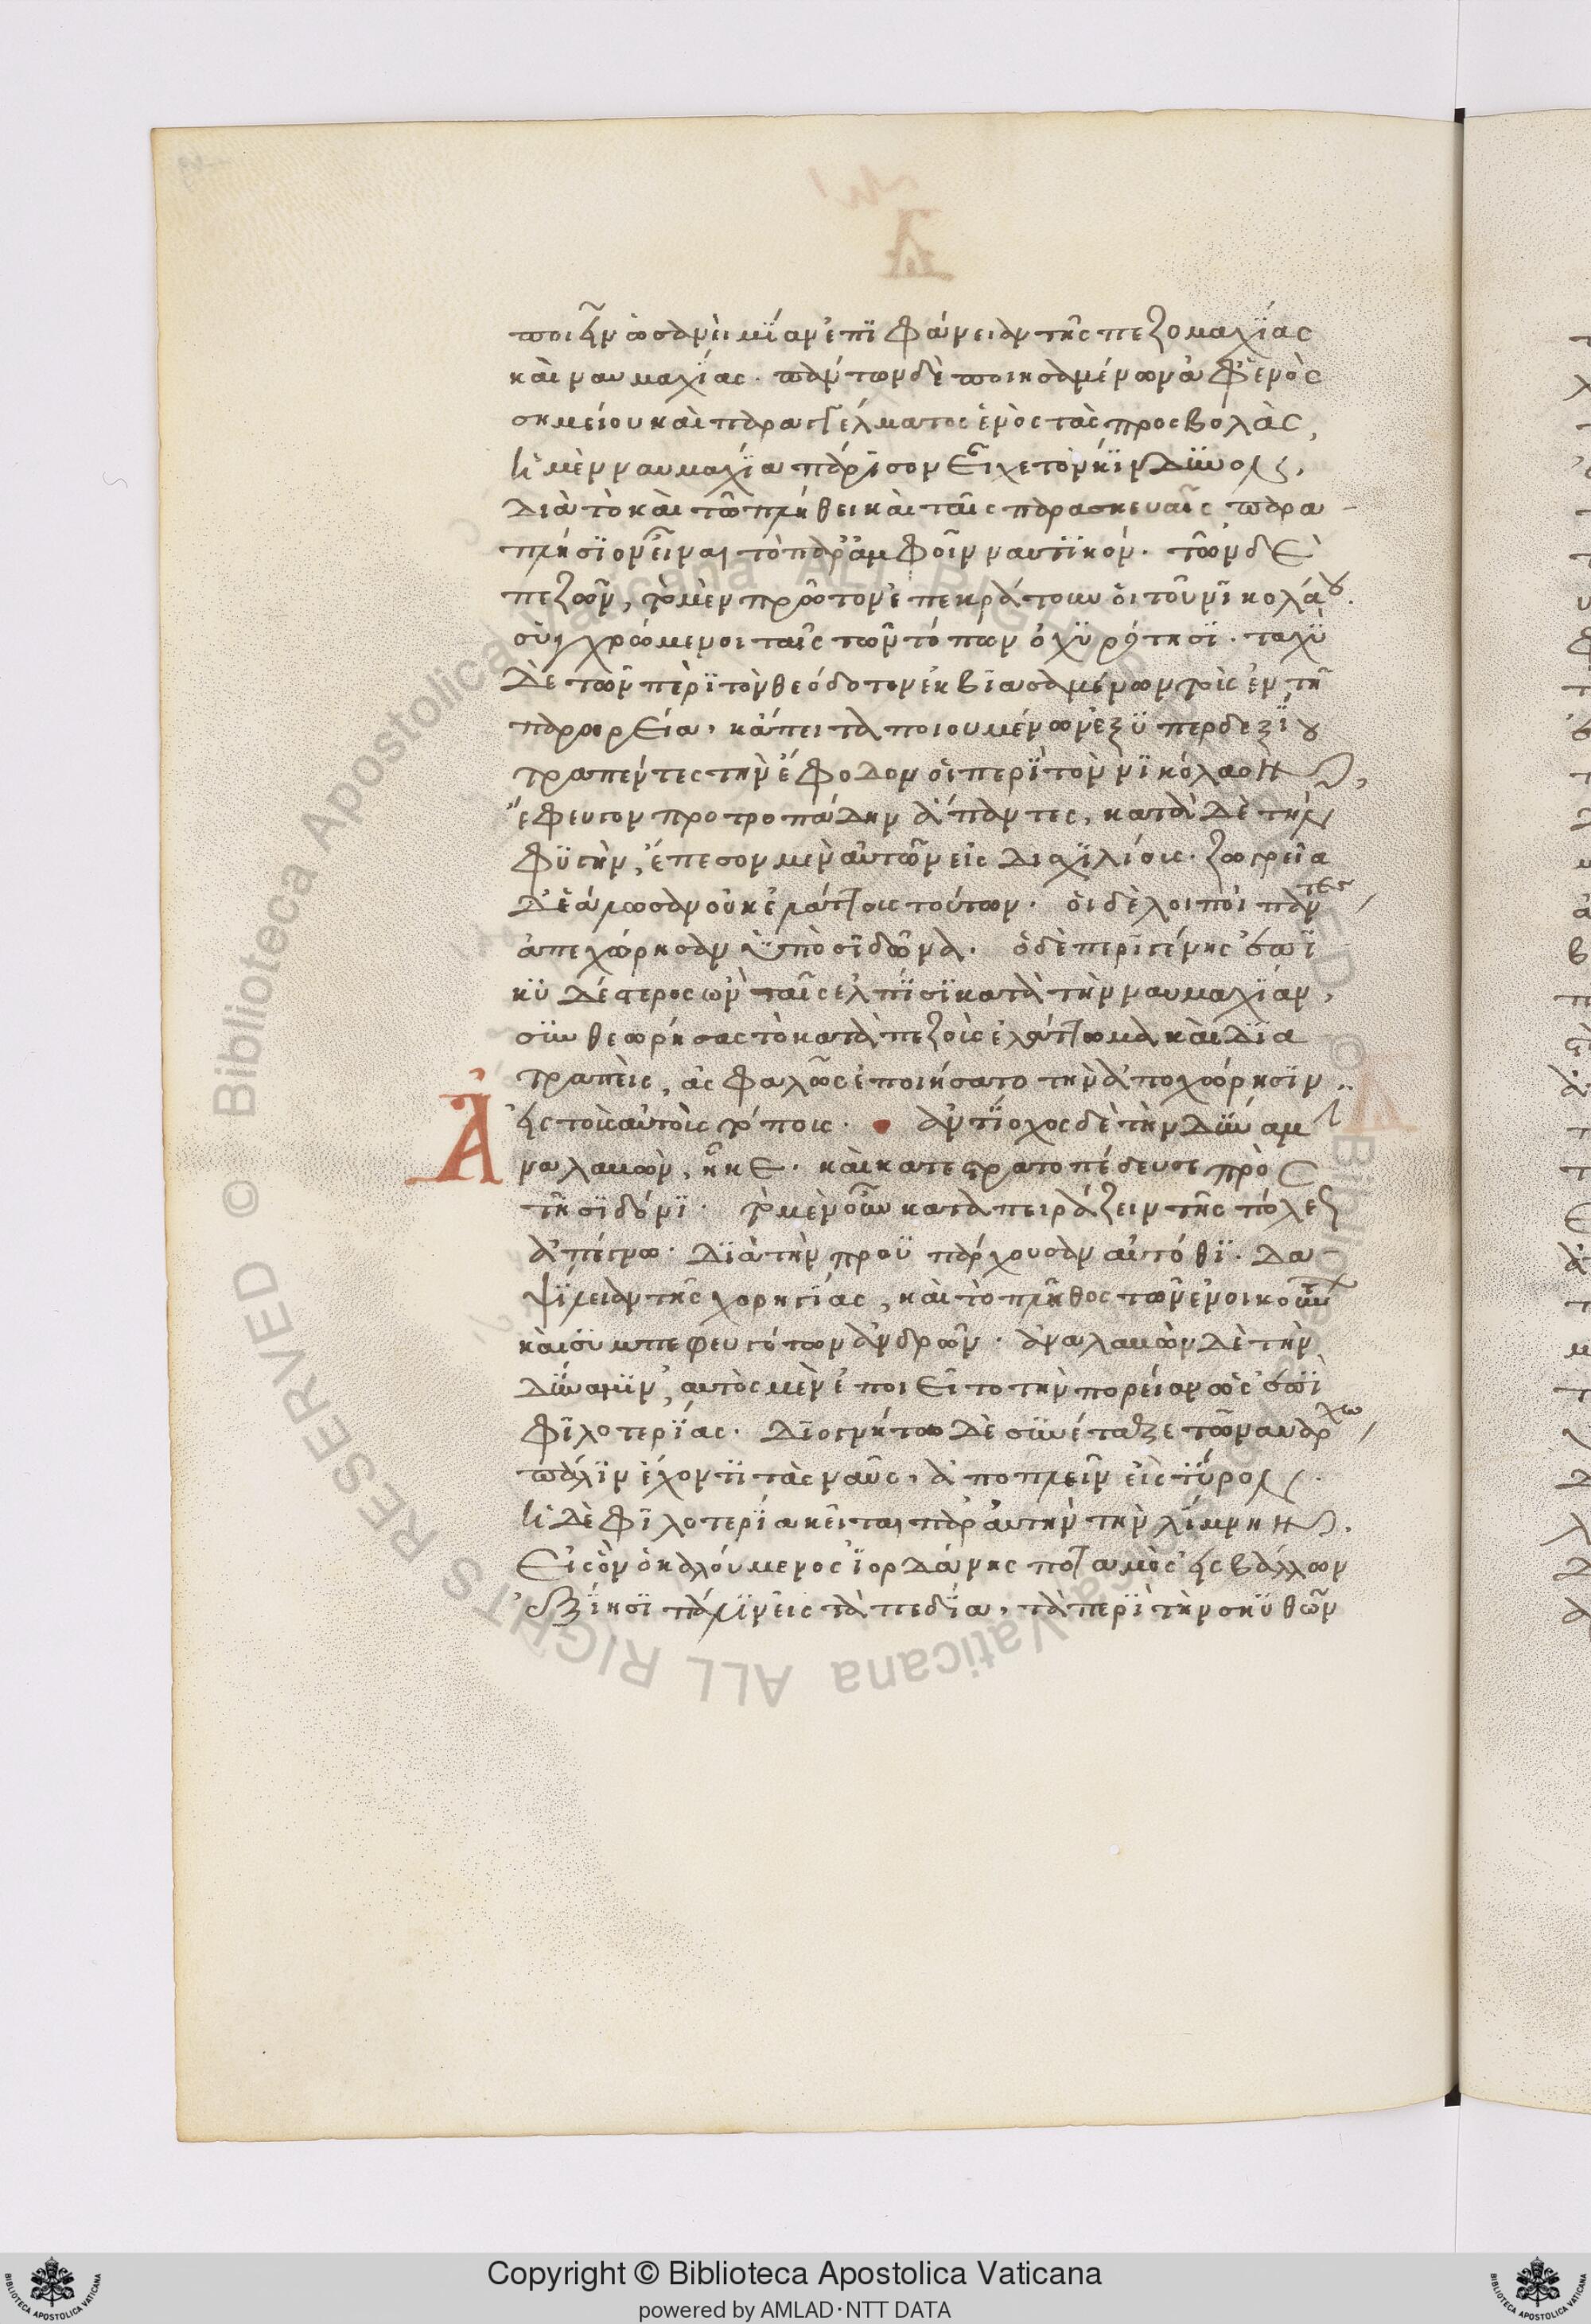 ποιεῖν ὡσανεὶ μίαν ἐπιφάνειαν τῆς πεζομαχίας
καὶ ναυμαχίας. πάντων δὲ ποιησαμένων ἀφ' ἑνὸς
σημείου καὶ παραγγέλματος ἑνὸς τὰς προσβολὰς,
ἡ μὲν ναυμαχία πάρισον εἶχε τὸν κίνδυνον,
διὰ τὸ καὶ τῶ πλήθει καὶ ταῖς παρασκευαῖς παρα
πλήσιον εἶναι τὸ παρ' ἀμφοῖν ναυτικόν. τῶν δὲ
πεζῶν, τὸ μὲν πρῶτον ἐπεκράτουν οἱ τοῦ νικολάου.
συγχρώμενοι ταῖς τῶν τόπων ὀχυρότησι. ταχὺ
δὲ τῶν περὶ τὸν θεόδοτον ἐκβιασαμένων τοὺς ἐν τῆ
παρωρεία, κἄπειτα ποιουμένων ἐξ ὑπερδεξίου
τραπέντες τὴν ἔφοδον οἱ περὶ τὸν νικόλαον,
ἔφευγον προτροπάδην ἅπαντες, κατὰ δὲ τὴν
φυγὴν, ἔπεσον μὲν αὐτῶν εἰς δισχιλίους. ζωγρεία
δὲ ἑάλωσαν οὐκ ἐλάττους τούτων. οἱ δὲ λοιποὶ πάντες
ἀπεχώρησαν ὑπὸ σιδῶνα. ὁ δὲ περιγένης ἐπι
κυδέστερος ὢν ταῖς ἐλπίσι κατὰ τὴν ναυμαχίαν,
συνθεωρήσας τὸ κατὰ πεζοὺς ἐλάττωμα καὶ δια
τραπεὶς, ἀσφαλῶς ἐποιήσατο τὴν ἀποχώρησιν
εἰς τοὺς αὐτοὺς τόπους. ἀντίοχος δὲ τὴν δύναμιν
Ἀναλαβὼν, ἧκε. καὶ κατεστρατοπέδευσε πρὸς
τῆ σιδόνι. τὸ μὲν οὖν καταπειράζειν τῆς πόλεως
ἀπέγνω. διὰ τὴν προϋπάρχουσαν αὐτόθι. δα
ψίλειαν τῆς χορηγίας, καὶ τὸ πλῆθος τῶν ἐνοικούντων
καὶ συμπεφευγότων ἀνδρῶν. ἀναλαβὼν δὲ τὴν
δύναμιν, αὐτὸς μὲν ἐποιεῖτο τὴν πορείαν ὡς ἐπὶ
φιλοτερίας. διογνήτω δὲ συνέταξε τῶ ναυάρχω
πάλιν ἔχοντι τὰς ναῦς, ἀποπλεῖν εἰς τύρον.
ἡ δὲ φιλοτερία κεῖται παρ' αὐτὴν τὴν λίμνην.
Εἰς ὃν ὁ καλούμενος ἰορδάνης ποταμὸς εἰσβάλλων
ἐξίησι πάλιν εἰς τὰ πεδία, τὰ περὶ τὴν σκυθῶν